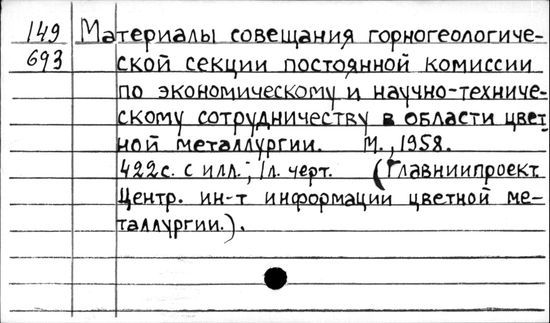 149 Материалы совещания горногеологиче-
693 ской секции постоянной комиссии
по экономическому и научно-техниче-
скому сотрудничеству в области цвет
ной металлургии. М., 1958.
422с. с илл.; 1л. черт. (Главниипроект.
Центр. ин-т информации цветной ме-
таллургии.).